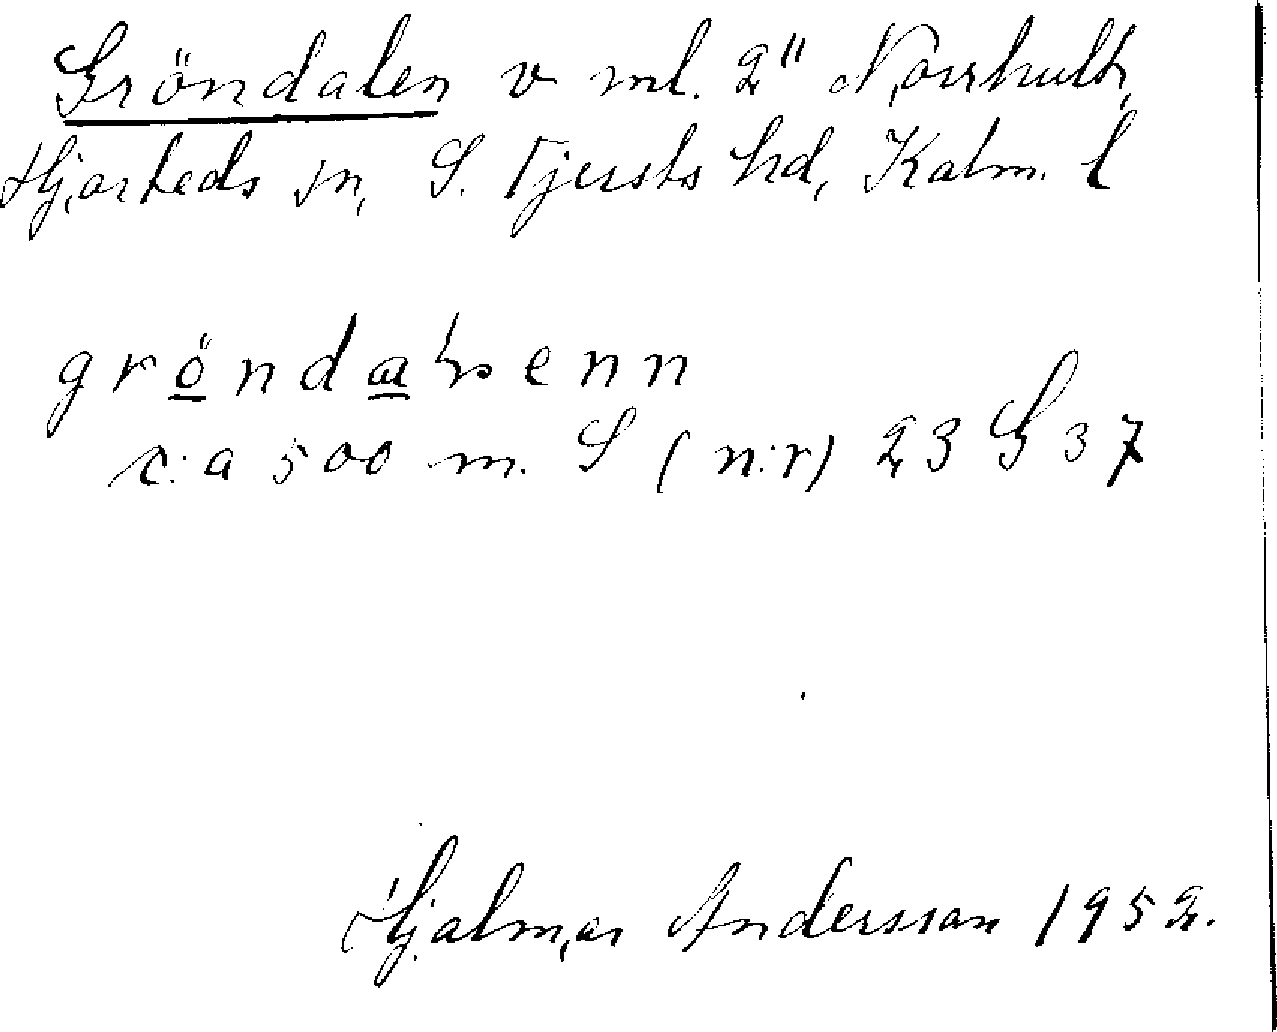 Gröndalen v ml. 2" Norrhult,
Hjorteds sn, S. Tjusts hd, Kalm. l
gröndalenn
c:a 500 m. S (n:r) 23 G 37
Hjalmar Andersson 1952.